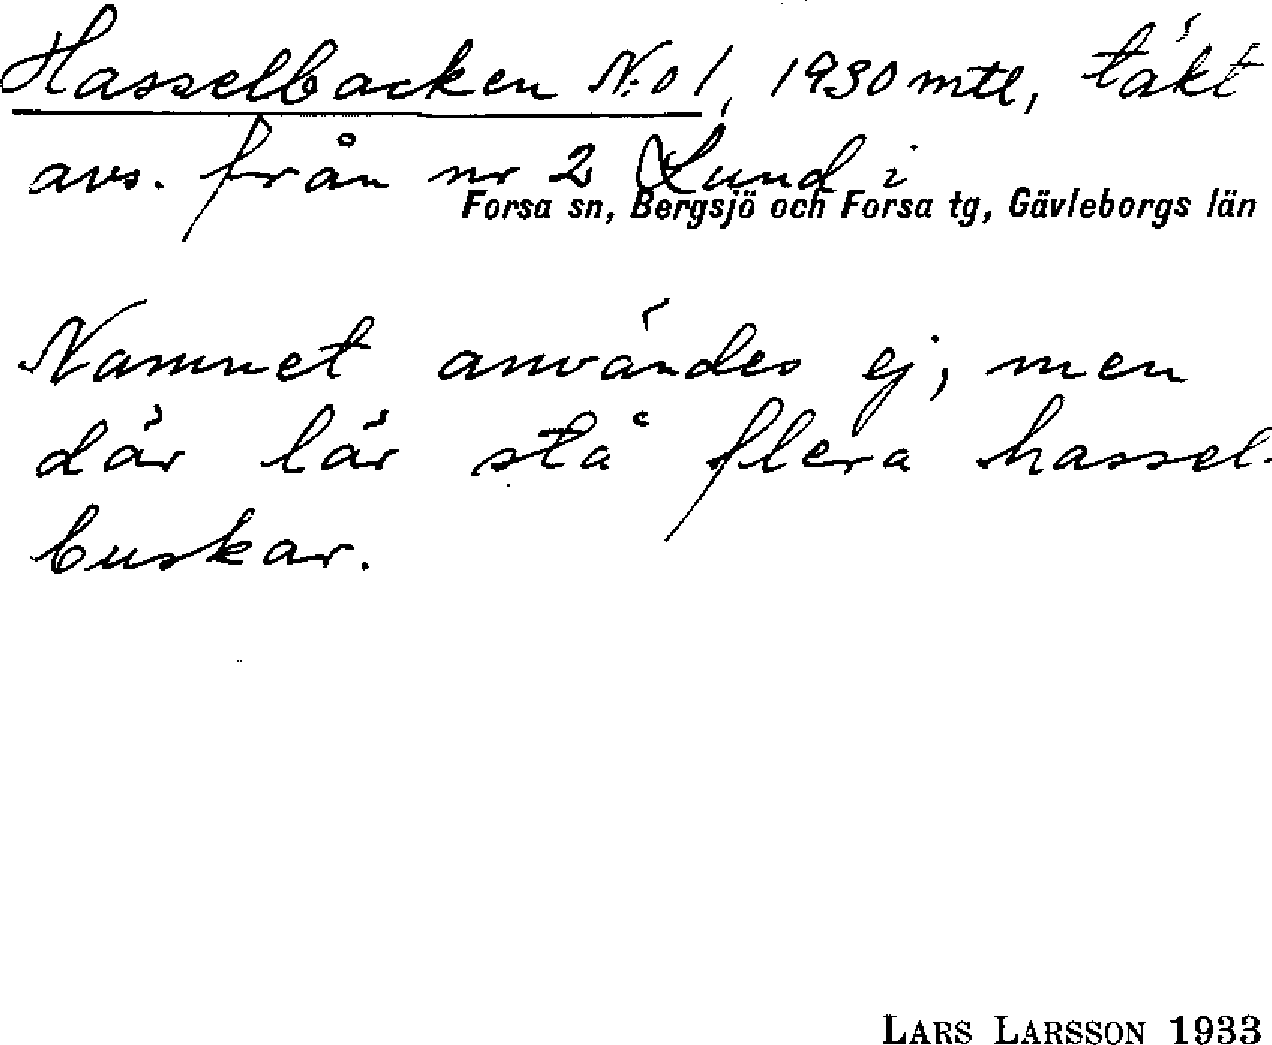 Hasselbacken N:o 1, 1930 mtl, täkt
avs. från nr 2 Lund i
Forsa sn, Bergsjö och Forsa tg, Gävleborgs län
Namnet användes ej, men
där lär stå flera hassel-
buskar.
LARS LARSSON 1933